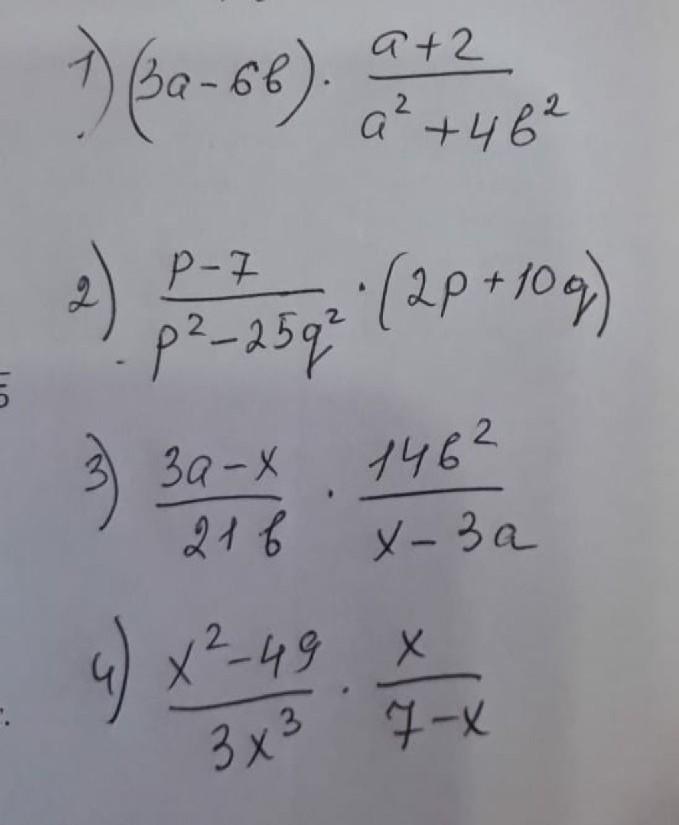 1) (3a-6b) · (a+2)/(a²+4b²)
2) (p-7)/(p²-25q²) · (2p+10q)
3) (3a-x)/(21b) · (14b²)/(x-3a)
4) (x²-49)/(3x³) · x/(7-x)